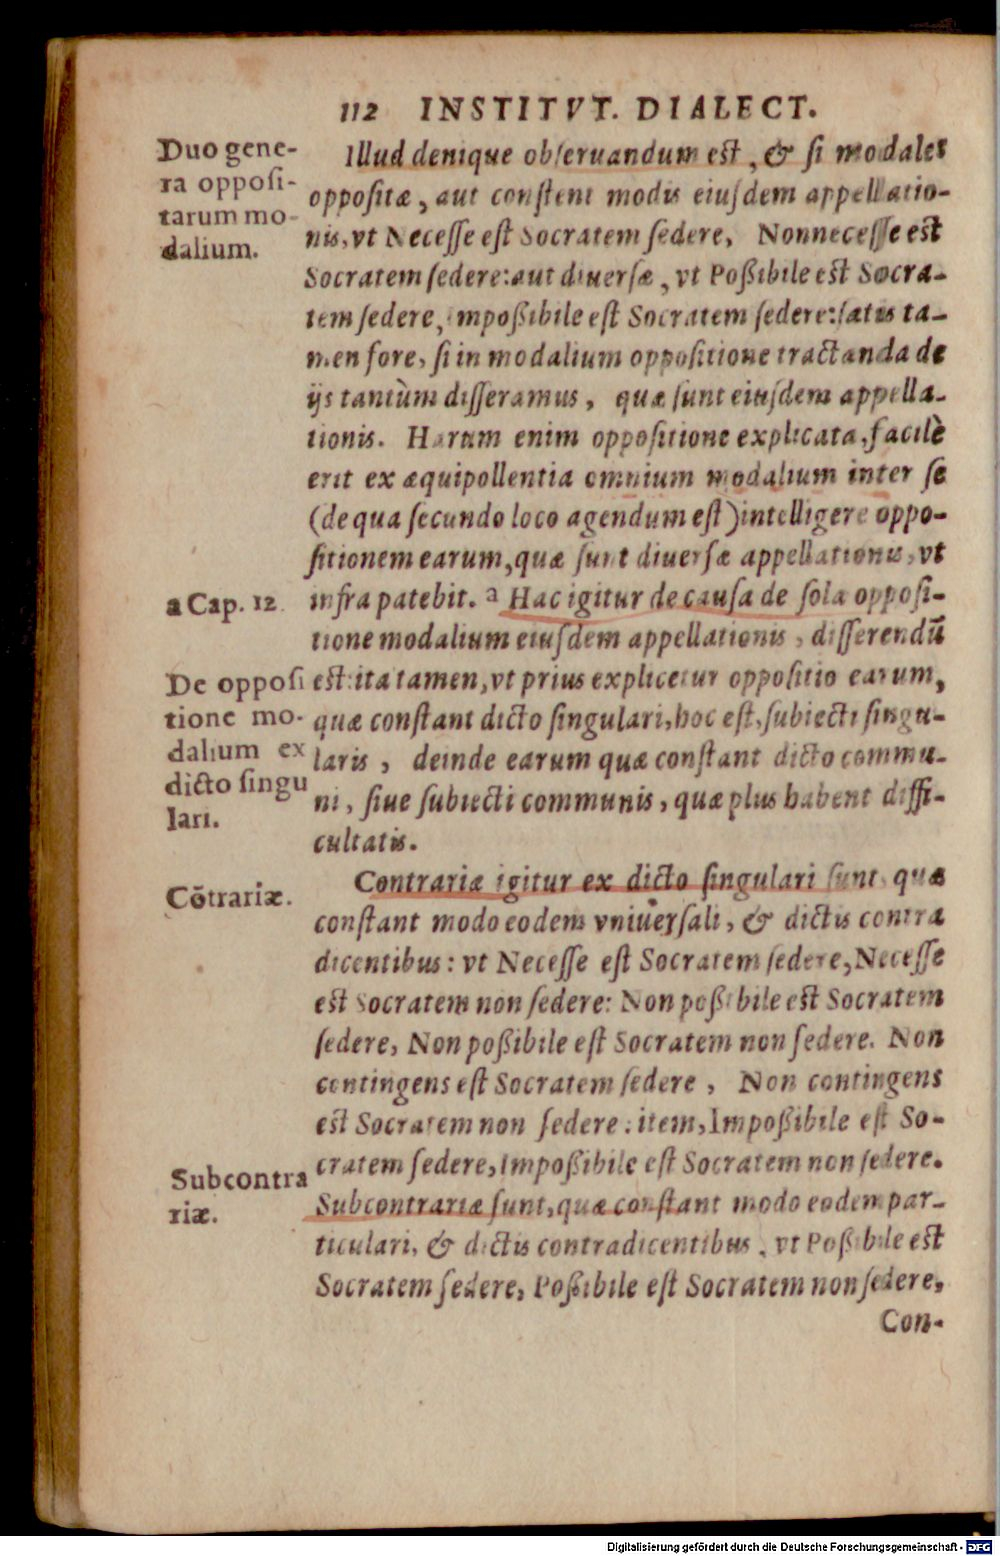 112 INSTITVT. DIALECT.
Duo gene-
ra opposi-
tarum mo-
dalium.
Illud denique obseruandum est, & si modales
oppositæ, aut constent modis eiusdem appellatio-
nis, vt Necesse est Socratem sedere, Non necesse est
Socratem sedere: aut diuersæ, vt Poßibile est Socra-
tem sedere, impoßibile est Socratem sedere: satis ta-
men fore, si in modalium oppositione tractanda de
ijs tantùm disseramus, quæ sunt eiusdem appella-
tionis. Harum enim oppositione explicata, facilè
erit ex æquipollentia omnium modalium inter se
(de qua secundo loco agendum est) intelligere oppo-
sitionem earum, quæ sunt diuersæ appellationis, vt
a Cap. 12
infra patebit. a Hac igitur de causa de sola opposi-
tione modalium eiusdem appellationis, disserendũ
De opposi
tione mo-
dalium ex
dicto singu
lari.
est: ita tamen, vt prius explicetur oppositio earum,
quæ constant dicto singulari, hoc est, subiecti singu-
laris, deinde earum quæ constant dicto commu-
ni, siue subiecti communis, quæ plus habent diffi-
cultatis.
Cõtrariæ.
Contrariæ igitur ex dicto singulari sunt, quæ
constant modo eodem vniuersali, & dictis contra
dicentibus: vt Necesse est Socratem sedere, Necesse
est Socratem non sedere: Non poßibile est Socratem
sedere, Non poßibile est Socratem non sedere. Non
contingens est Socratem sedere, Non contingens
est Socratem non sedere: item, Impoßibile est So-
cratem sedere, Impoßibile est Socratem non sedere.
Subcontra
riæ.
Subcontrariæ sunt, quæ constant modo eodem par-
ticulari, & dictis contradicentibus, vt Poßibile est
Socratem sedere, Poßibile est Socratem non sedere,
Con-
Digitalisierung gefördert durch die Deutsche Forschungsgemeinschaft - DFG